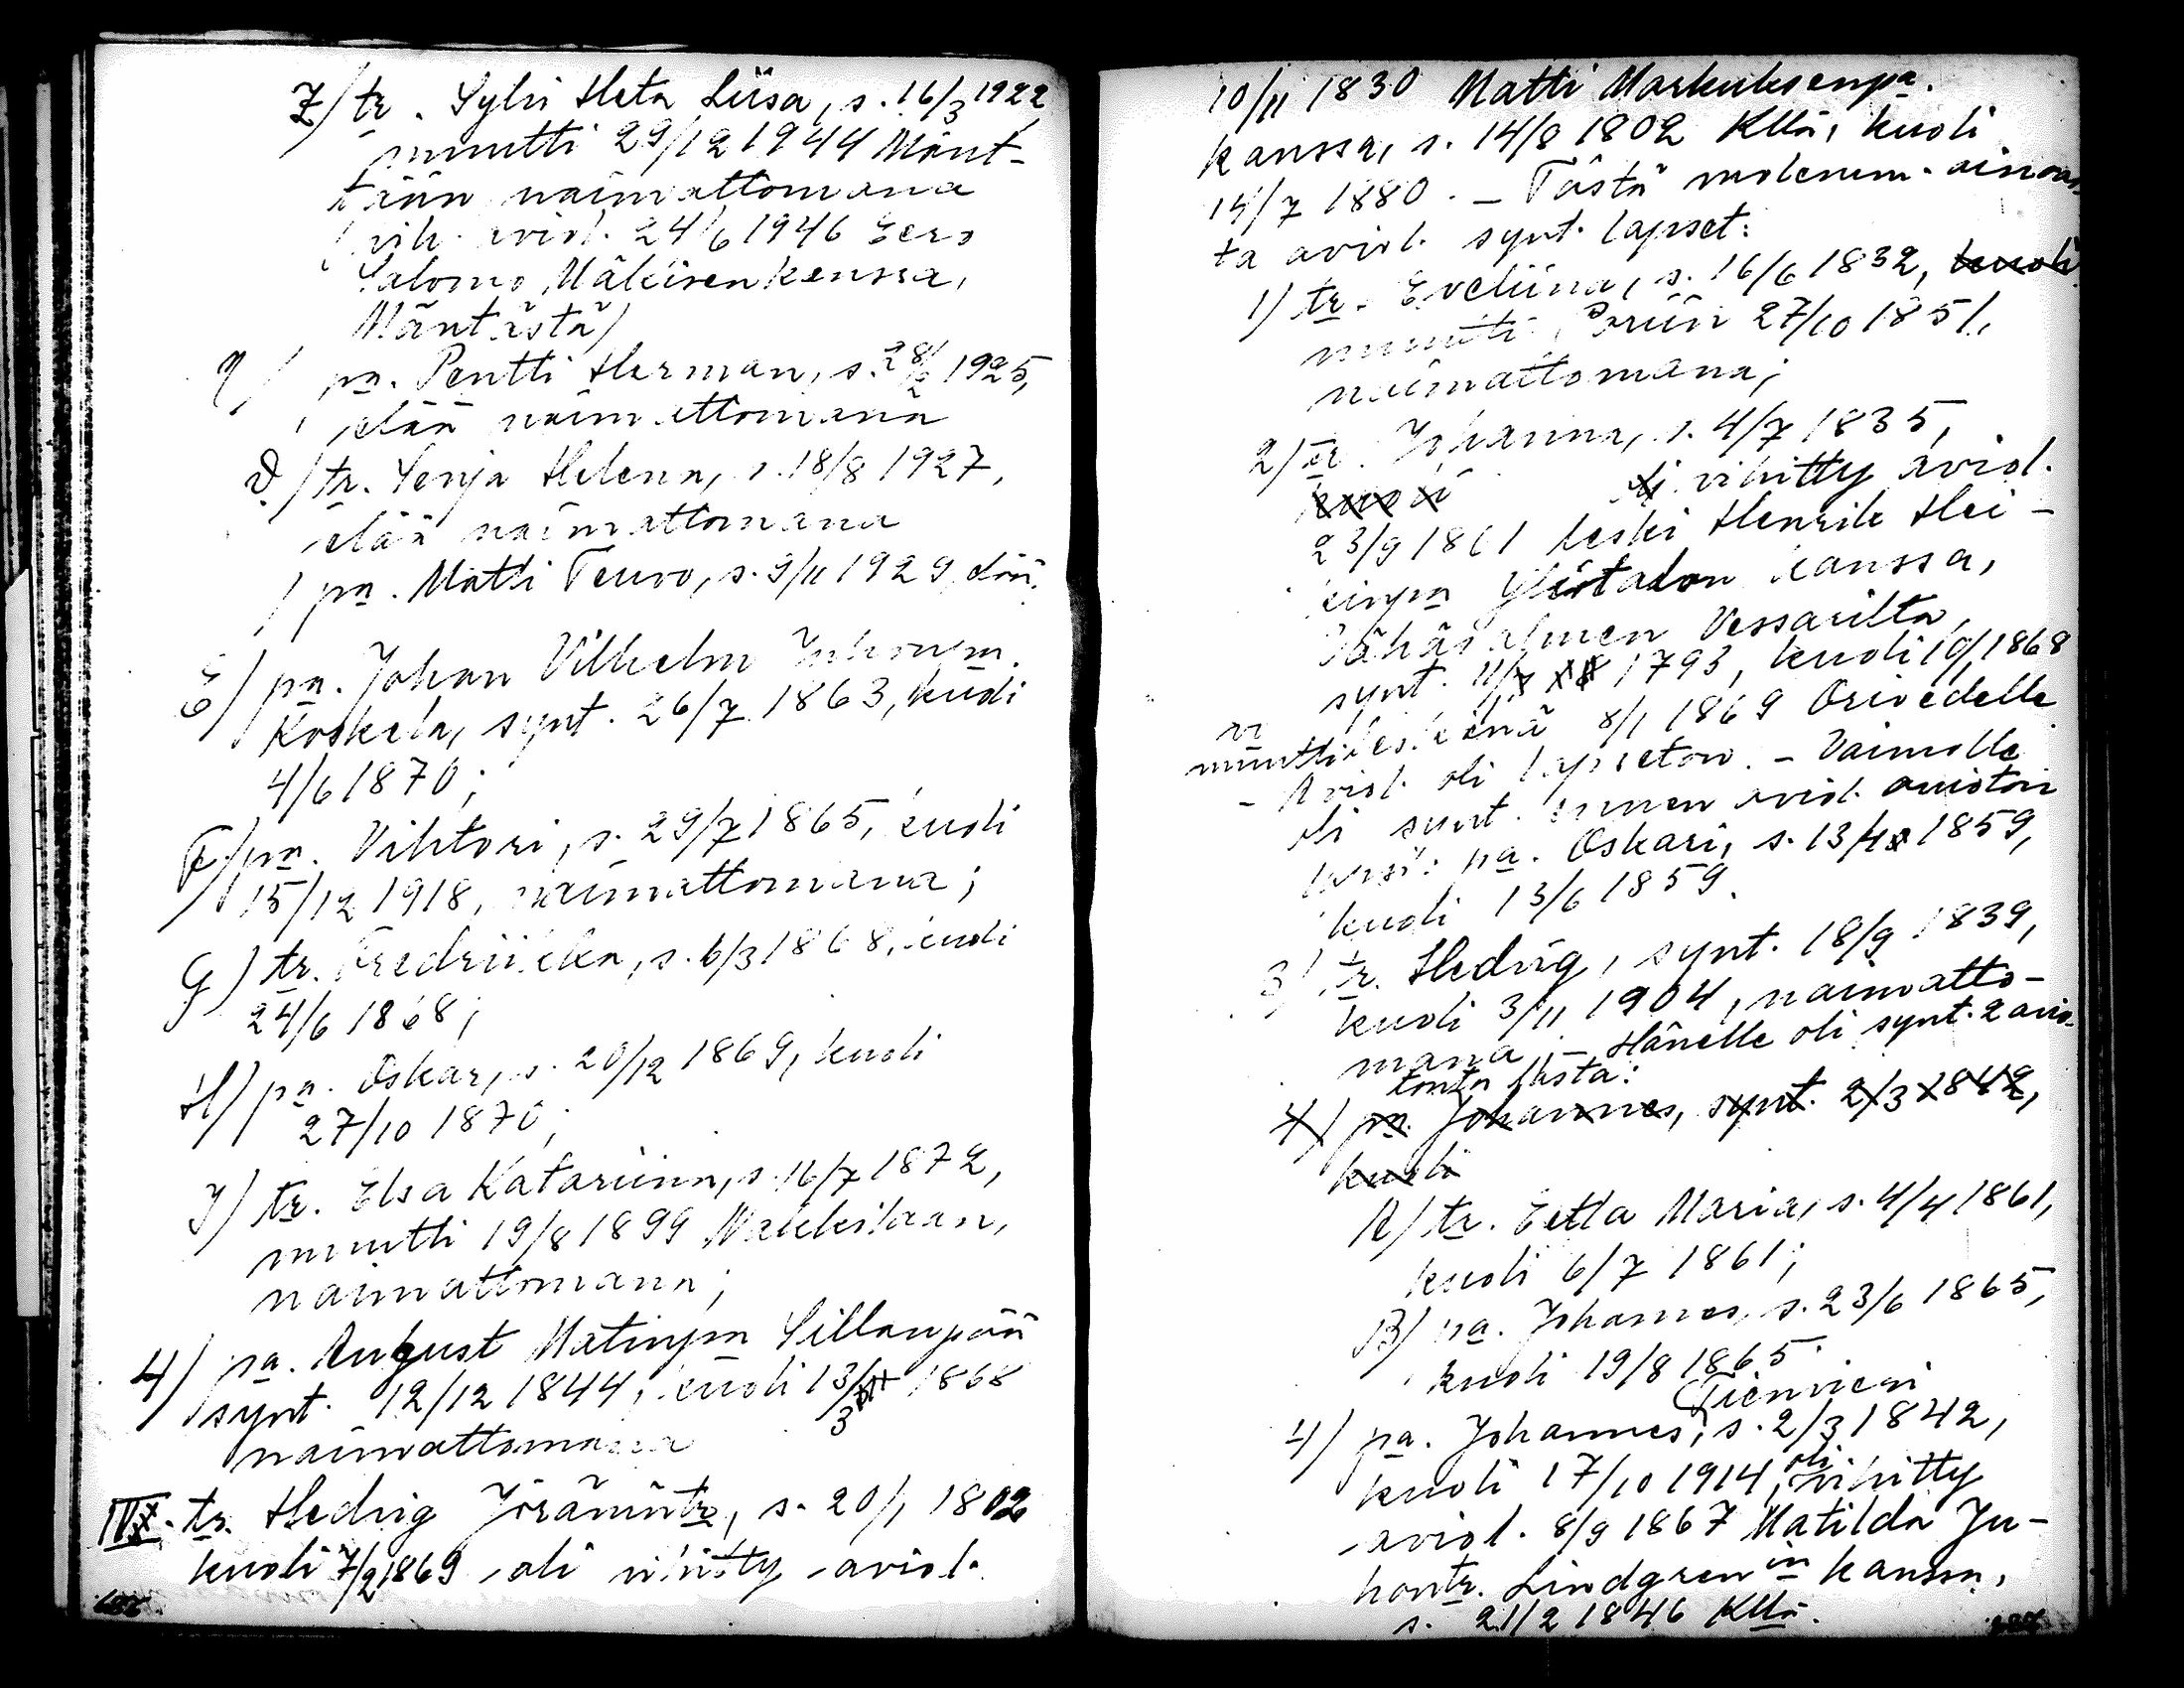 7) tr. Sylvi Heta Liisa, s. 16/3 1922,
muutti 29/12 1944 Mänt-
tään naimattomana
(vih. aviol. 24/6 1946 Eero
Salomo Mäkisen kanssa,
Mäntästä)
pa. Pentti Herman, s. 28/2 1925,
elää naimattomana
tr. Senja Helena, s. 18/8 1927,
elää naimattomana
) pa. Matti Teuvo, s. 9/11 1929, elää.
E) pa. Johan Vilhelm Juhonpa.
Koskela, synt. 26/7 1863, kuoli
4/6 1870;
F) pa. Vihtori, s. 29/7 1865, kuoli
15/12 1918, naimattomana;
G) tr. Fredriika, s. 6/3 1868, kuoli
24/6 1868;
H) pa. Oskar, s. 20/12 1869, kuoli
27/10 1870;
J) tr. Elsa Katariina, s. 16/7 1872,
muutti 19/8 1899
naimattomana;
4) pa. August Matinpa Sillanpää
synt. 12/12 1844, kuoli 13/3 1868
naimattomana
IV. tr. Hedvig Jöräмintr, s. 20/1 1802
kuoli 7/2 1869 oli vihitty aviol.
10/11 1830 Matti Markuksenpa.
kanssa, s. 14/8 1802 Kllä, kuoli
14/7 1880. – Tästä molemm. ainoas
ta aviol. synt. lapset:
1) tr. Eveliina, s. 16/6 1832, kuoli
muutti Poriin 27/10 1851,
naimattomana;
2) tr. Johanna, s. 4/7 1835,
kuoli oli vihitty aviol.
23/9 1861 leski Henrik Hei-
kinpa Ylistalon kanssa,
Vessarilta,
synt. 11/7 1793, kuoli 1868
va
muutti leskenä 8/1 1869 Orivedelle
- Aviol. oli lapseton. – Vaimolle
oli synt. ennen aviol. avioton
lapsi: pa. Oskari, s. 13/4 1859,
kuoli 13/6 1859.
3) tr. Hedvig, synt. 18/9 1839,
kuoli 3/11 1904, naimatto-
mana, – Hänelle oli synt. 2 avio-
tonta lasta:
4) pa. Johannes, synt. 2/3 1842,
kuoli
A) tr. Eetla Maria, s. 4/4 1861,
kuoli 6/7 1861;
B) pa. Johannes, s. 23/6 1865,
kuoli 19/8 1865.
Tienvieri
4) pa. Johannes, s. 2/3 1842,
kuoli 17/10 1914, oli vihitty
aviol. 8/9 1867 Matilda Ju-
hontr. Lindgren in kanssa,
s. 21/2 1846 Kllä.